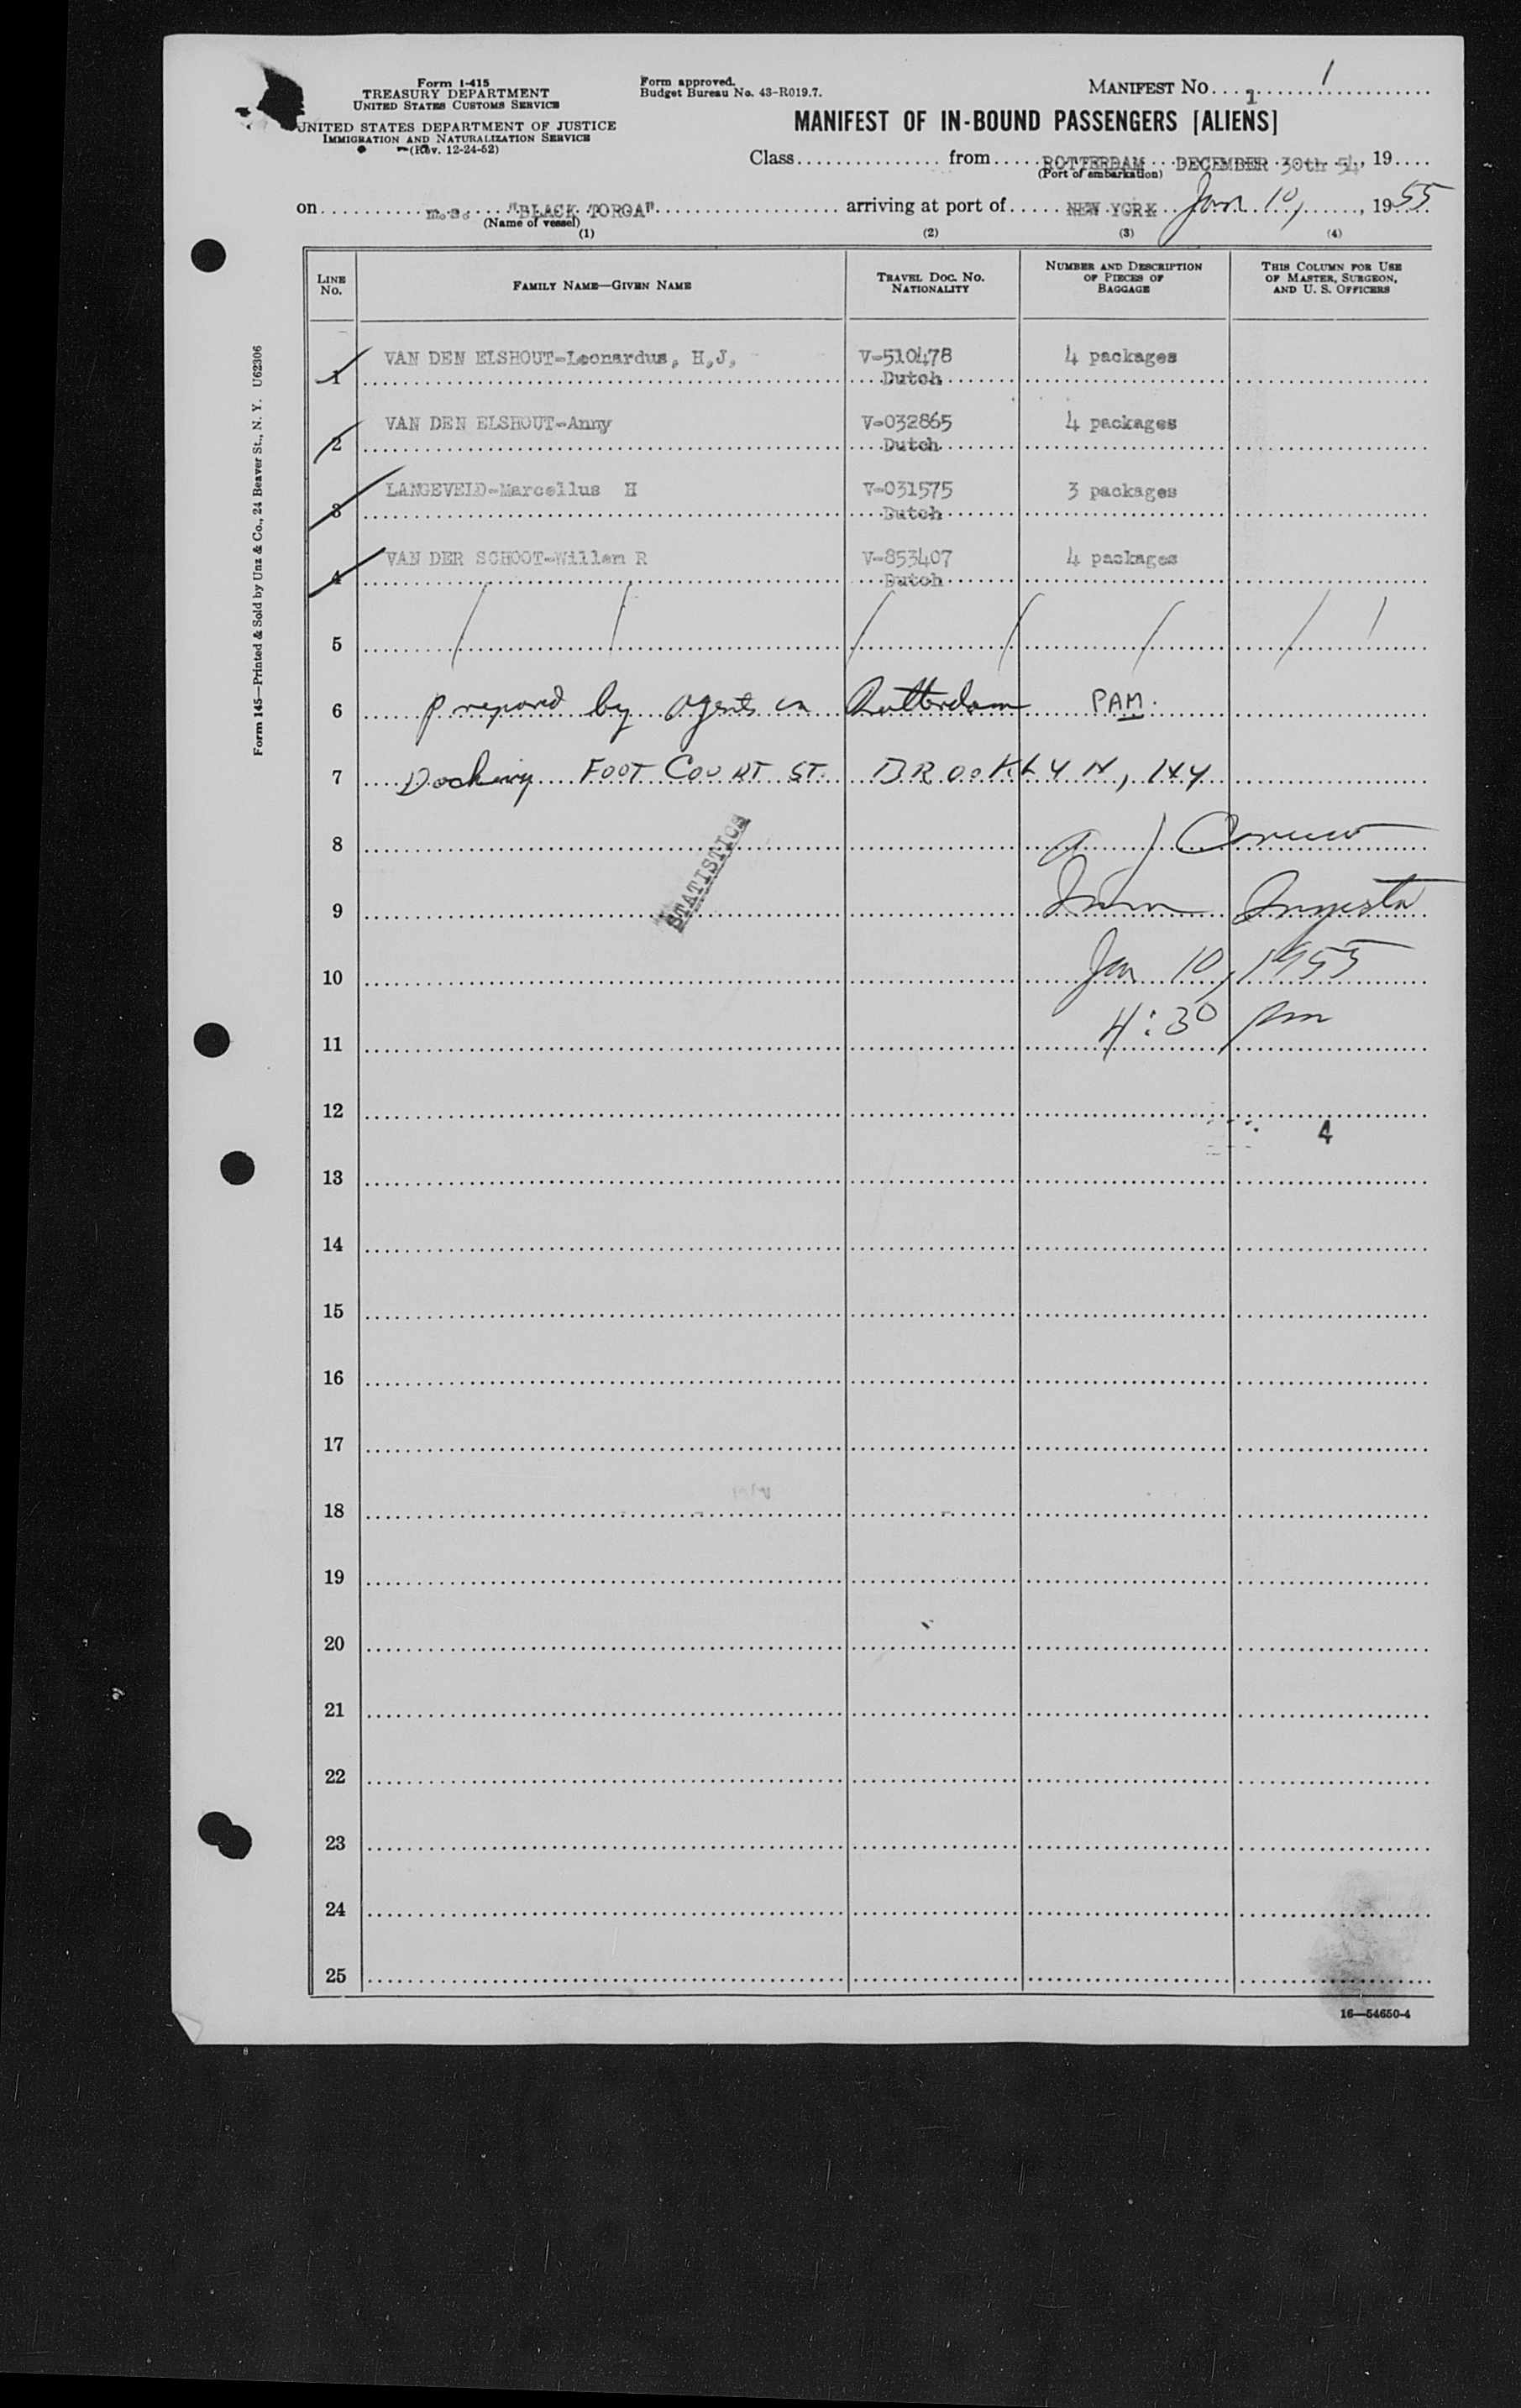 Form I-415
TREASURY DEPARTMENT
UNITED STATES CUSTOMS SERVICE
UNITED STATES DEPARTMENT OF JUSTICE
IMMIGRATION AND NATURALIZATION SERVICE
(Rev. 12-24-52)
Form approved.
Budget Bureau No. 43-R019.7.
MANIFEST NO. 1 1
MANIFEST OF IN-BOUND PASSENGERS [ALIENS]
Class from ROTTERDAM DECEMBER 30th 54, 19
(Port of embarkation)
on m.s. "BLACK TORGA" arriving at port of NEW YORK Jan 10, 1955
(Name of vessel)
(1) (2) (3) (4)
LINE NO. FAMILY NAME—GIVEN NAME TRAVEL DOC. NO. NATIONALITY NUMBER AND DESCRIPTION OF PIECES OF BAGGAGE THIS COLUMN FOR USE OF MASTER, SURGEON, AND U. S. OFFICERS
1 VAN DEN ELSHOUT-Leonardus, H,J, V-510478 4 packages
Dutch
2 VAN DEN ELSHOUT-Anny V-032865 4 packages
Dutch
3 LANGEVELD-Marcellus H V-031575 3 packages
Dutch
4 VAN DER SCHOOT-Willem R V-853407 4 packages
Dutch
5
6 prepared by agents in Rotterdam PAM.
7 Docking FOOT COURT ST. BROOKLYN, NY
8
STATISTICS
9
10 Jan 10, 1955
11 4:30 pm
12
4
13
14
15
16
17
18
19
20
21
22
23
24
25
16—54650-4
Form 145—Printed & Sold by Unz & Co., 24 Beaver St., N. Y. U62306